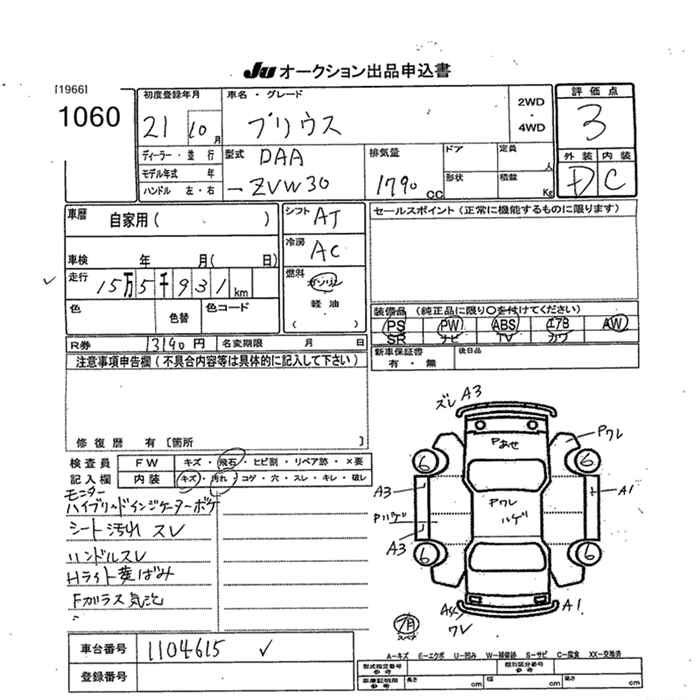 JU オークション出品申込書
[1966]
1060
初度登録年月
21 10月
車名・グレード
プリウス
2WD
・
4WD
評価点
3
外装 内装
D C
ディーラー・並行
モデル年式 年
ハンドル 左・右
型式 DAA
-ZVW30
排気量
1790 CC
ドア
定員 人
形状
積載 Kg
車歴
自家用( )
車検 年 月( 日)
走行
15万5千931km
色
色替
色コード
シフト AT
冷房 AC
燃料
ガソリン
軽油
( )
セールスポイント(正常に機能するものに限ります)
装備品(純正品に限り○を付けてください)
PS PW ABS エアB AW
SR ナビ TV カワ
新車保証書
有・無
後日品
R券 13190円
名変期限 月 日
注意事項申告欄(不具合内容等は具体的に記入して下さい)
修復歴 有〔箇所 〕
検査員 FW キズ・飛石・ヒビ割・リペア跡・×要
記入欄 内装 キズ・汚れ・コゲ・穴・スレ・キレ・破レ
モニター
ハイブリッドインジケーターボケ
シート汚れ スレ
ハンドルスレ
Hライト黄ばみ
Fガラス気泡
ズレ A3
Pあせ
Pワレ
6 6
A3 A1
Pワレ
ハゲ
Pハゲ
A3
6 6
A4
ワレ
A1
スペア
A-キズ E-エクボ U-凹み W-補修跡 S-サビ C-腐食 XX-交換済
車台番号 1104615
登録番号
型式指定番号
参考
類別区分番号
参考
車庫証明用
参考
長さ cm 幅 cm 高さ cm